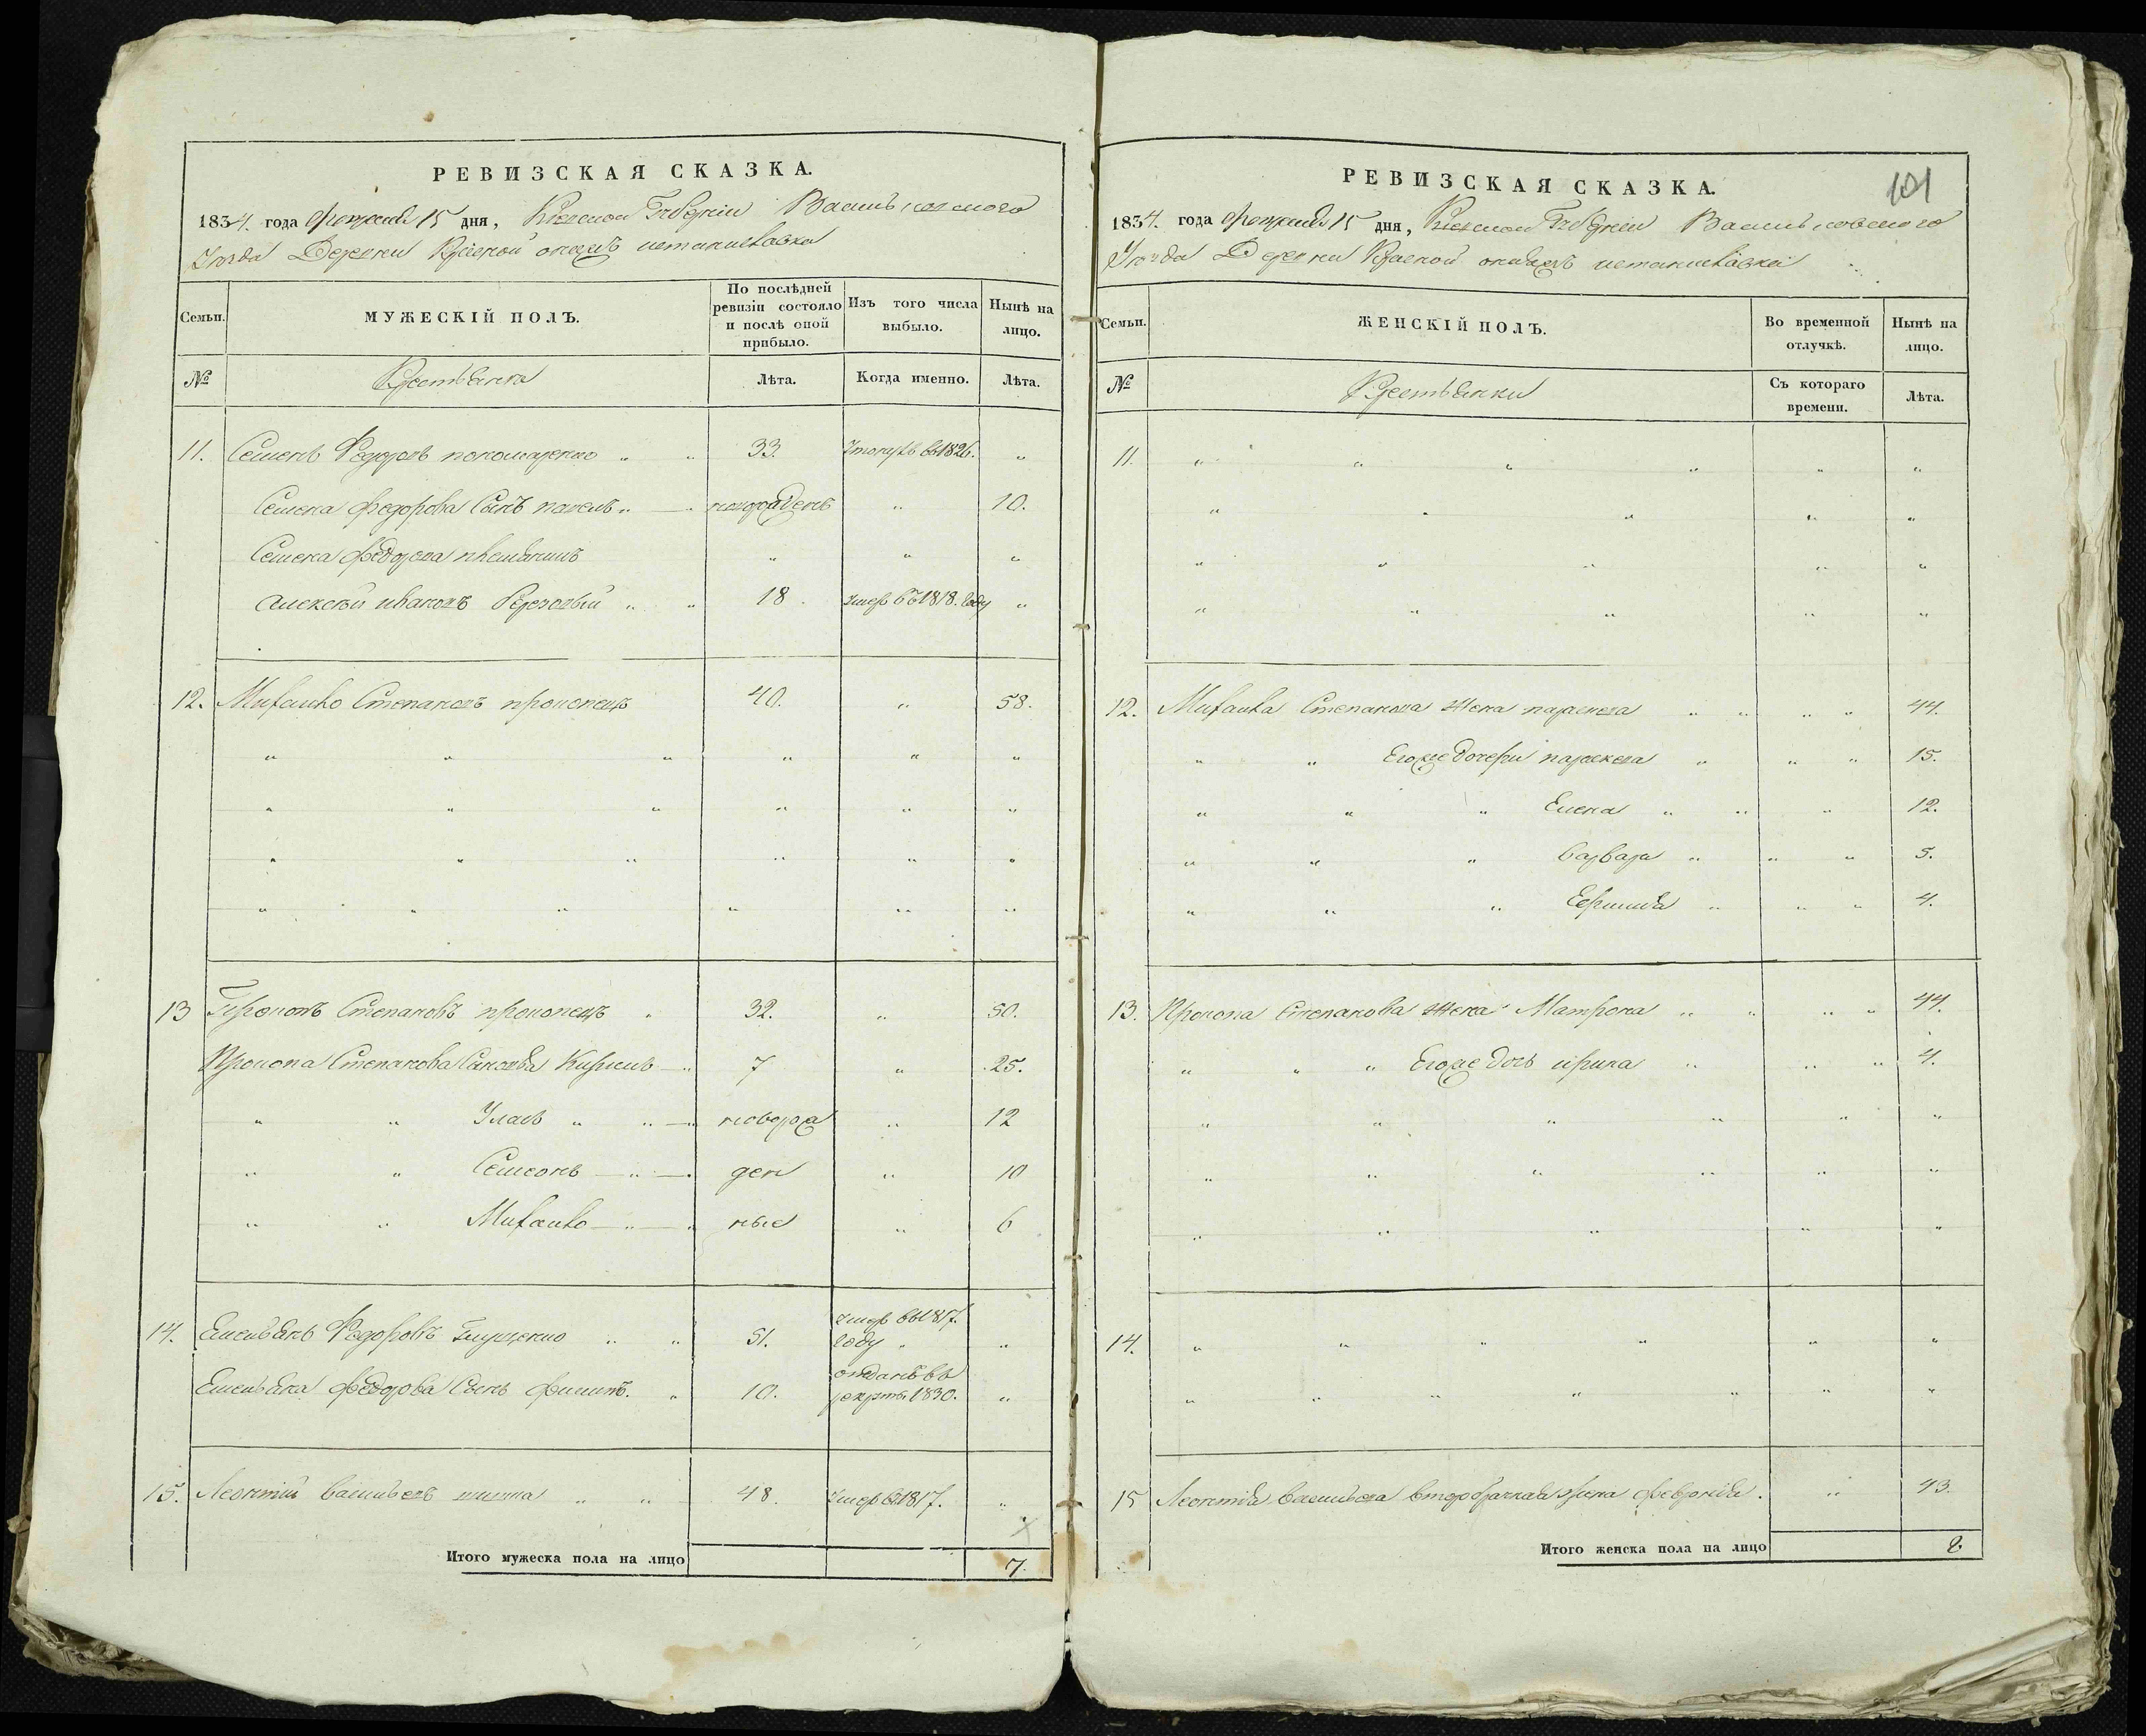 РЕВИЗСКАЯ СКАЗКА.
1834. года февраля 15 дня, Киевской Губернии Васильковского
Уезда Деревни
Семьи.
МУЖЕСКІЙ ПОЛЪ.
По послѣдней ревизіи состояло и послѣ оной прибыло.
Изъ того числа выбыло.
Нынѣ на лицо.
№
Крестьяне
Лѣта.
Когда именно.
Лѣта.
11. Семенъ Федоровъ пономаренко 33. 1826. "
Семена Федорова Сынъ павелъ новорожденъ " 10.
Семена Федорова племянникъ " " "
алексѣй ивановъ 18. умер въ 1818. году "
12. Михайло Степановъ прокопецъ 40. " 58.
13 Прокопъ Степановъ прокопецъ 32. " 50.
Прокопа Степанова Сыновья Кирилъ 7 " 25.
" " Уласъ новорож " 12
" " Семионъ ден " 10
" " Михайло ные " 6
14. Емельянъ Федоровъ 51. умер въ 1817. году "
Емельяна Федорова Сынъ филипъ. 10. отданъ въ рекруты 1830. "
15. Леонтий васильевъ 48. умер въ 1817. "
Итого мужеска пола на лицо 7.
101
РЕВИЗСКАЯ СКАЗКА.
1834. года февраля 15 дня, Киевской Губернии Васильковского
Уезда Деревни
Семьи.
ЖЕНСКІЙ ПОЛЪ.
Во временной отлучкѣ.
Нынѣ на лицо.
№
Крестьянки
Съ котораго времени.
Лѣта.
11. " " " " " "
12. Михайла Степанова жена параскева " " 44.
" " Егоже дочери параскева " " 15.
" " " Елена " " 12.
" " " варвара " " 5.
" " " " " 4.
13. Прокопа Степанова жена Матрона " " 44.
" " " Егоже дочь ирина " " 4.
14. " " " " " "
15 Леонтия васильева второбрачная жена феврония. " 43.
Итого женска пола на лицо 8.